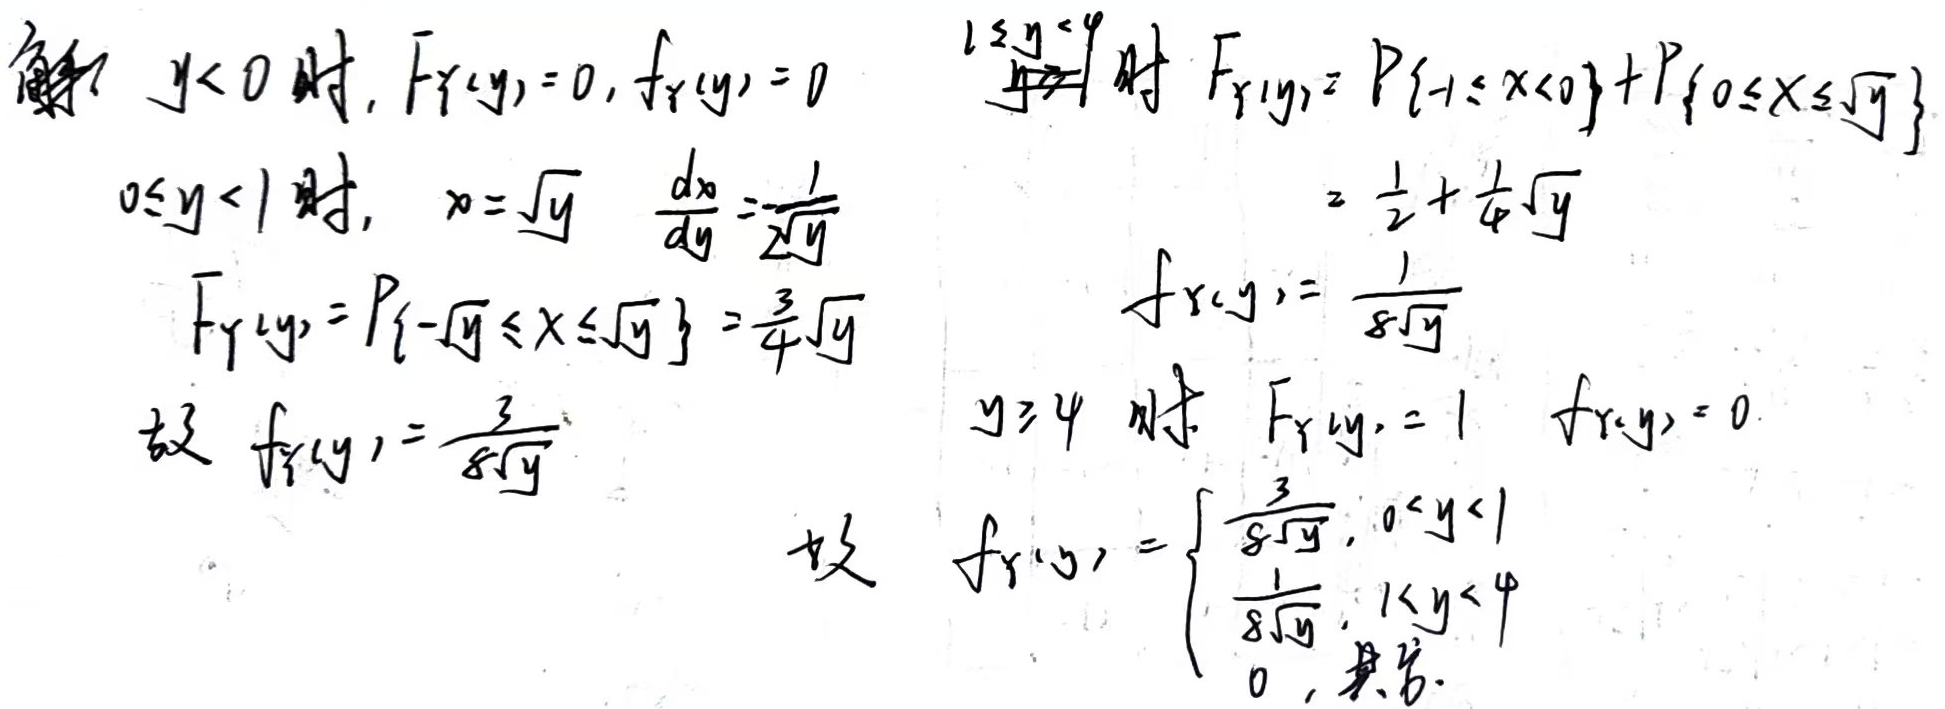 解 y<0时, F_Y(y)=0, f_Y(y)=0
0≤y<1时, x=√y dx/dy=1/(2√y)
F_Y(y)=P{-√y≤X≤√y}=3/4√y
故 f_Y(y)=3/(8√y)
1≤y<4时 F_Y(y)=P{-1≤X<0}+P{0≤X≤√y}
=1/2+1/4√y
f_Y(y)=1/(8√y)
y≥4时 F_Y(y)=1 f_Y(y)=0.
故 f_Y(y)={3/(8√y), 0<y<1
1/(8√y), 1<y<4
0, 其他.